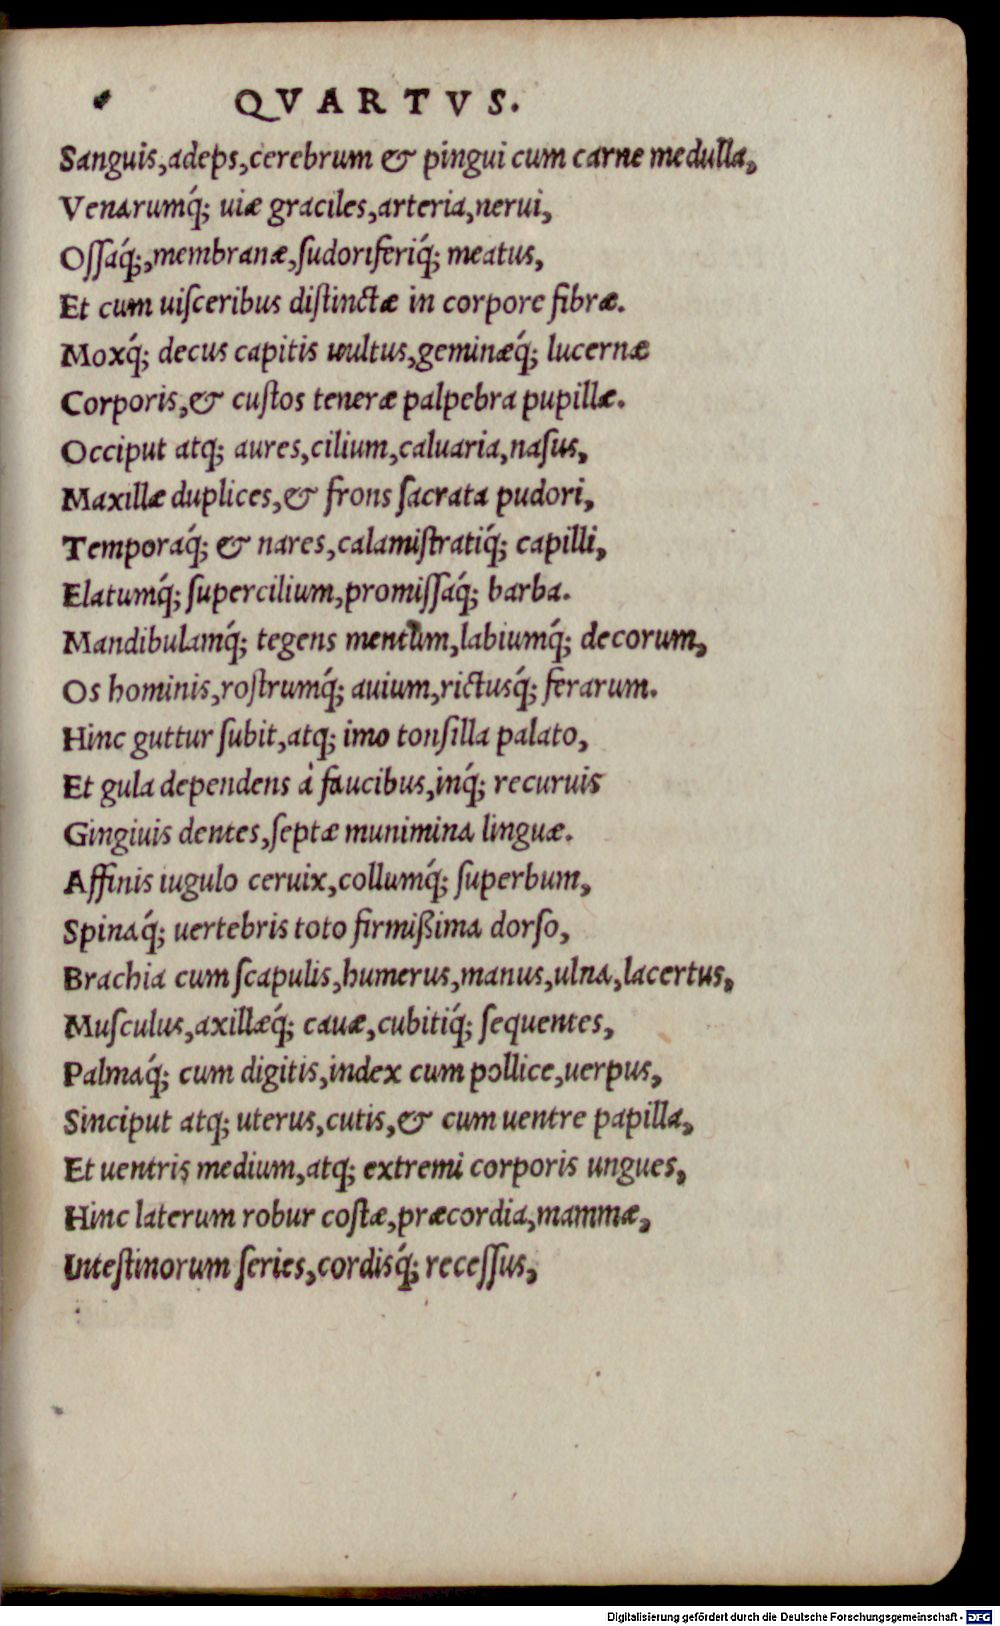 QVARTVS.
Sanguis, adeps, cerebrum & pingui cum carne medulla,
Venarumq́; uiæ graciles, arteria, nerui,
Oſſaq́;, membranæ, ſudoriferiq́; meatus,
Et cum uiſceribus diſtinctæ in corpore fibræ.
Moxq́; decus capitis uultus, geminæq́; lucernæ
Corporis, & cuſtos teneræ palpebra pupillæ.
Occiput atq; aures, cilium, caluaria, naſus,
Maxillæ duplices, & frons ſacrata pudori,
Temporaq́; & nares, calamiſtratiq́; capilli,
Elatumq́; ſupercilium, promiſſaq́; barba.
Mandibulamq́; tegens mentum, labiumq́; decorum,
Os hominis, roſtrumq́; auium, rictusq́; ferarum.
Hinc guttur ſubit, atq; imo tonſilla palato,
Et gula dependens à faucibus, inq́; recuruis
Gingiuis dentes, ſeptæ munimina linguæ.
Affinis iugulo ceruix, collumq́; ſuperbum,
Spinaq́; uertebris toto firmißima dorſo,
Brachia cum ſcapulis, humerus, manus, ulna, lacertus,
Muſculus, axillæq́; cauæ, cubitiq́; ſequentes,
Palmaq́; cum digitis, index cum pollice, uerpus,
Sinciput atq; uterus, cutis, & cum uentre papilla,
Et uentris medium, atq; extremi corporis ungues,
Hinc laterum robur coſtæ, præcordia, mammæ,
Inteſtinorum ſeries, cordisq́; receſſus,
Digitalisierung gefördert durch die Deutsche Forschungsgemeinschaft - DFG